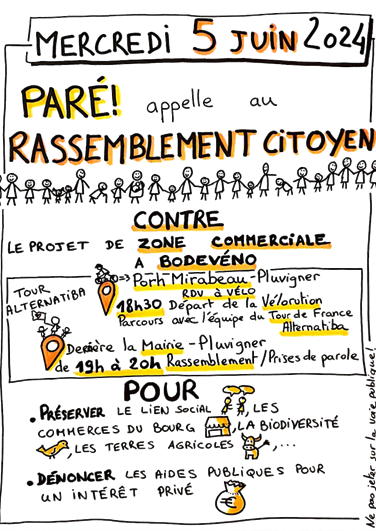 MERCREDI 5 JUIN 2024
PARÉ! appelle au
RASSEMBLEMENT CITOYEN
CONTRE
LE PROJET DE ZONE COMMERCIALE
A BODEVÉNO
TOUR
ALTERNATIBA
=> Porh Mirabeau-Pluvigner
RDV À VÉLO
18h30 Départ de la Vélorution
Parcours avec l'équipe du Tour de France
Alternatiba
Derrière la Mairie-Pluvigner
de 19h à 20h Rassemblement/Prises de parole
POUR
• PRÉSERVER LE LIEN SOCIAL, LES
COMMERCES DU BOURG, LA BIODIVERSITÉ
, LES TERRES AGRICOLES ,...
• DÉNONCER LES AIDES PUBLIQUES POUR
UN INTÉRÊT PRIVÉ
€
Ne pas jeter sur la voie publique!